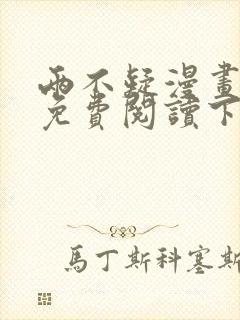 兩不疑漫畫
免費閱讀下
馬丁斯科塞斯